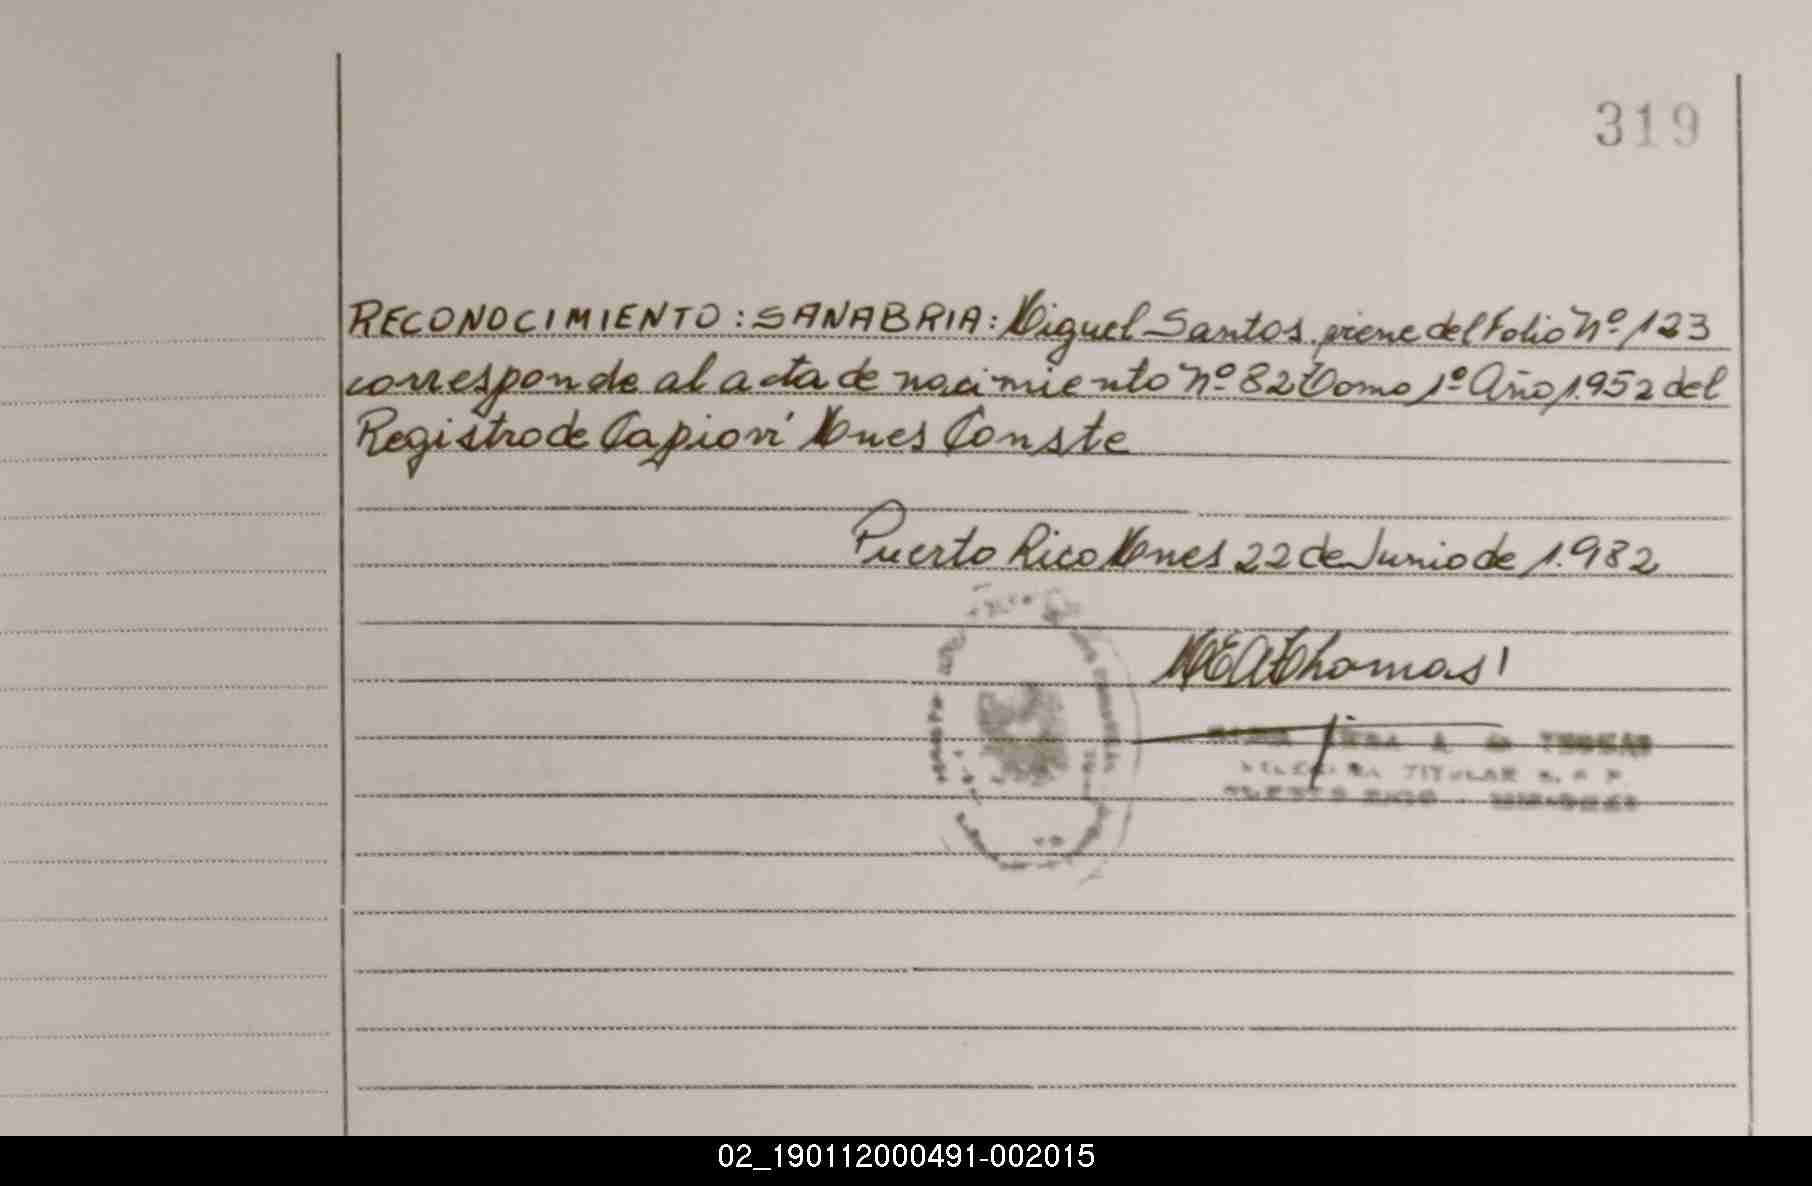 319
RECONOCIMIENTO: SANABRIA: Miguel Santos. viene del Folio Nº 123
corresponde al acta de nacimiento Nº 82 Tomo 1º Año 1.952 del
Registro de Capiovi Mnes Conste
Puerto Rico Mnes 22 de Junio de 1.982
MEAThomas
A de THOMAS
TITULAR
PUERTO RICO - MISIONES
02_190112000491-002015